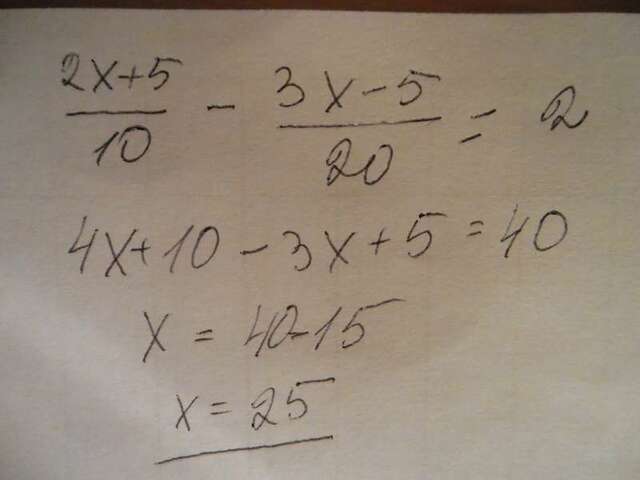 (2x+5)/10 - (3x-5)/20 = 2
4x+10-3x+5=40
x = 40-15
x = 25